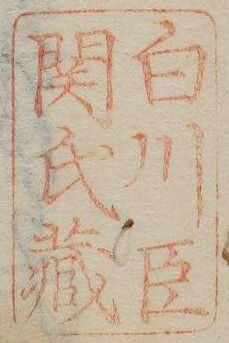 白川臣
関氏藏